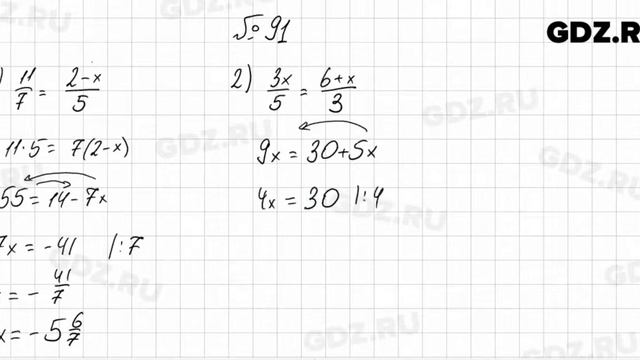 № 91
GDZ.R
) 11/7 = (2-x)/5
11·5 = 7(2-x)
55 = 14 - 7x
7x = -41 |:7
= - 41/7
x = -5 6/7
2) 3x/5 = (6+x)/3
9x = 30+5x
4x = 30 |:4
GDZ.RU
GDZ.RU
GDZ.RU
GDZ.RU
GDZ.RU